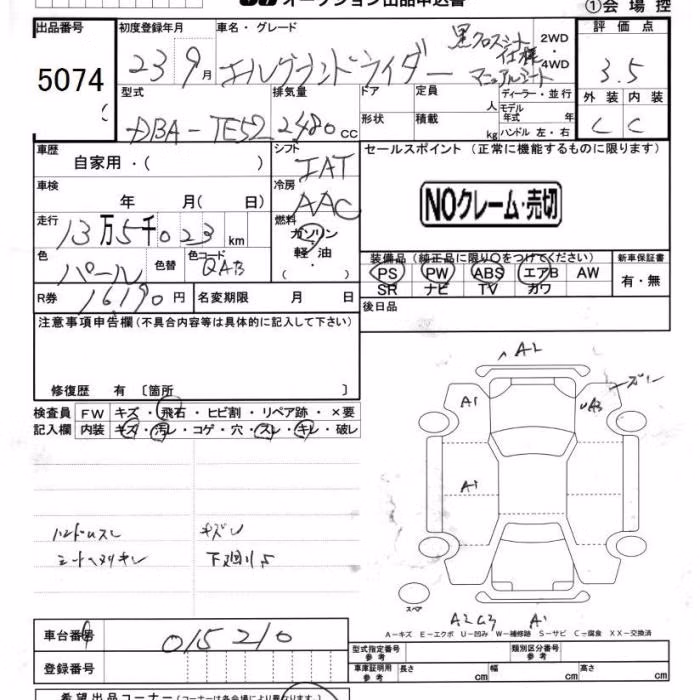 オークション出品申込書
①会場控
出品番号 初度登録年月 車名・グレード 評価点
5074
23 9月 エルグランドライダー 黒クロスシート仕様 マニュアルシート
2WD・4WD
3.5
型式 排気量 ドア 定員 人 ディーラー・並行 外装 内装
DBA-TE52 2480cc
形状 積載 kg
モデル年式 年
ハンドル 左・右
C C
車歴 シフト セールスポイント (正常に機能するものに限ります)
自家用・( ) IAT
車検 冷房
年 月( 日) AAC
NOクレーム・売切
走行 燃料
13万5千023km ガソリン・軽油・( )
色 色替 色コード
パール QAB
装備品(純正品に限り○をつけてください) 新車保証書
PS PW ABS エアB AW 有・無
SR ナビ TV カワ
R券 16190円 名変期限 月 日 後日品
注意事項申告欄(不具合内容等は具体的に記入して下さい)
修復歴 有〔箇所 〕
検査員 FW キズ・飛石・ヒビ割・リペア跡・×要
記入欄 内装 キズ・汚レ・コゲ・穴・スレ・キレ・破レ
A2
A1
UA3
A1
ハンドルスレ
シートヘタリキレ
キズレ
スペア
A1
A-キズ E-エクボ U-凹み W-補修跡 S-サビ C-腐食 XX-交換済
車台番号 015210
登録番号
型式指定番号 参考 類別区分番号 参考
車庫証明用 参考 長さ cm 幅 cm 高さ cm
希望出品コーナー(コーナーは各会場により異なります)